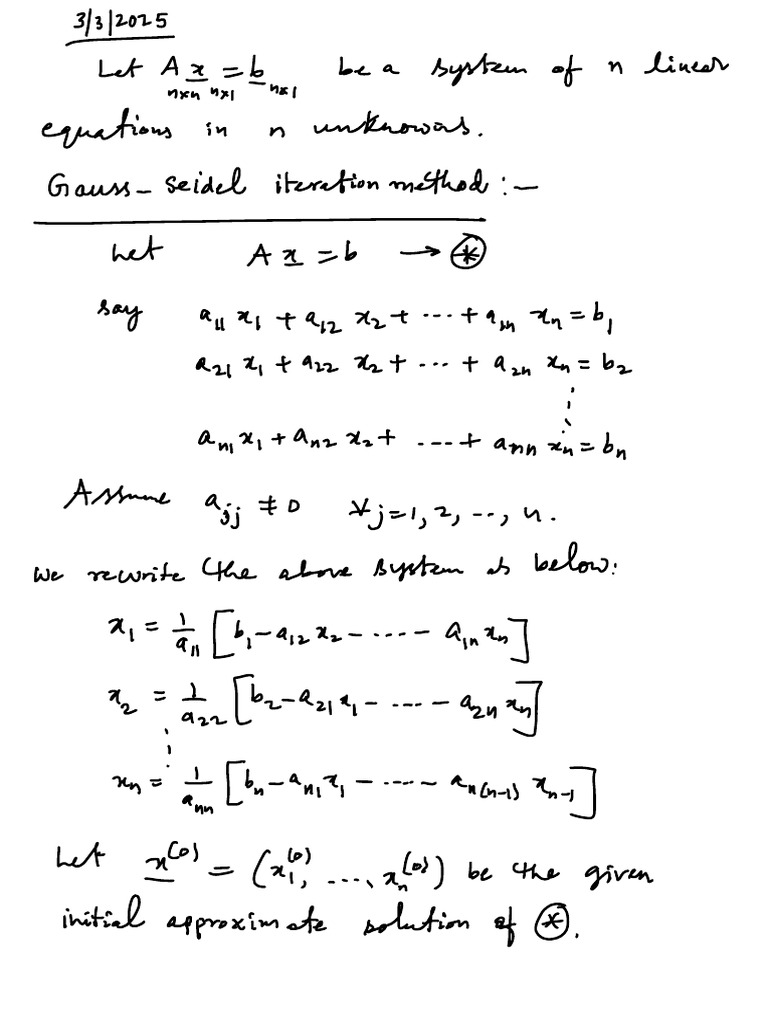 3/3/2025
Let A x = b be a system of n linear
n×n n×1 n×1
equations in n unknowns.
Gauss-Seidel iteration method :-
Let A x = b → ⊛
say a₁₁ x₁ + a₁₂ x₂ + ... + a₁ₙ xₙ = b₁
a₂₁ x₁ + a₂₂ x₂ + ... + a₂ₙ xₙ = b₂
⋮
aₙ₁ x₁ + aₙ₂ x₂ + ... + aₙₙ xₙ = bₙ
Assume a_jj ≠ 0 ∀ j = 1, 2, .., n.
We rewrite the above system as below:
x₁ = 1/a₁₁ [b₁ - a₁₂ x₂ - .... - a₁ₙ xₙ]
x₂ = 1/a₂₂ [b₂ - a₂₁ x₁ - .... - a₂ₙ xₙ]
⋮
xₙ = 1/aₙₙ [bₙ - aₙ₁ x₁ - .... - aₙ₍ₙ₋₁₎ xₙ₋₁]
Let x⁽⁰⁾ = (x₁⁽⁰⁾, ...., xₙ⁽⁰⁾) be the given
initial approximate solution of ⊛.